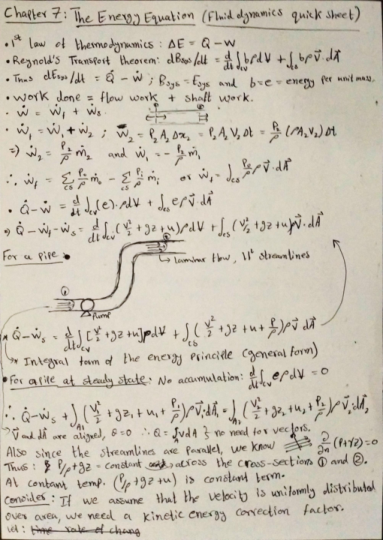 Chapter 7: The Energy Equation (Fluid dynamics quick sheet)
• 1st law of thermodynamics: ΔE = Q - W
• Reynold's Transport theorem: dBsys/dt = d/dt ∫cv bρdV + ∫cs bρV⃗.dA⃗
• Thus dEsys/dt = Q̇ - Ẇ ; Bsys = Esys and b=e = energy per unit mass.
• work done = flow work + shaft work.
• Ẇ = Ẇf + Ẇs
• Ẇf = Ẇ1 + Ẇ2 ; W2 = P2 A2 Δx2 = P2 A2 V2 Δt = P2/ρ (ρA2V2) Δt
=) Ẇ2 = P2/ρ ṁ2 and Ẇ1 = - P1/ρ ṁ1
∴ Ẇf = Σcs P0/ρ ṁo - Σcs Pi/ρ ṁi or Ẇf = ∫cs P/ρ ρV⃗.dA⃗
• Q̇ - Ẇ = d/dt ∫cv (e).ρdV + ∫cs eρV⃗.dA⃗
=) Q̇ - Ẇf - Ẇs = d/dt ∫cv (V²/2 + gz + u)ρdV + ∫cs (V²/2 + gz + u)ρV⃗.dA⃗
For a pipe
② laminar flow, 11² streamlines
① Pump
Q̇ - Ẇs = d/dt ∫cv [V²/2 + gz + u]ρdV + ∫cs (V²/2 + gz + u + P/ρ)ρV⃗.dA⃗
Integral form of the energy principle (general form)
• For a pipe at steady state: No accumulation: d/dt ∫cv eρdV = 0
∴ Q̇ - Ẇs + ∫A1 (V1²/2 + gz1 + u1 + P1/ρ)ρV⃗1.dA⃗1 = ∫A2 (V2²/2 + gz2 + u2 + P2/ρ)ρV⃗2.dA⃗2
V⃗ and dA⃗ are aligned, θ=0 ∴ Q = ∫vdA } no need for vectors.
Also since the streamlines are parallel, we know ∂/∂n (P+γZ) = 0
Thus: P/ρ + gz = constant across the cross-sections ① and ②.
At contant temp. (P/ρ + gz + u) is constant term.
Consider: If we assume that the velocity is uniformly distributed
over area, we need a kinetic energy correction factor.
let: time rate of chang